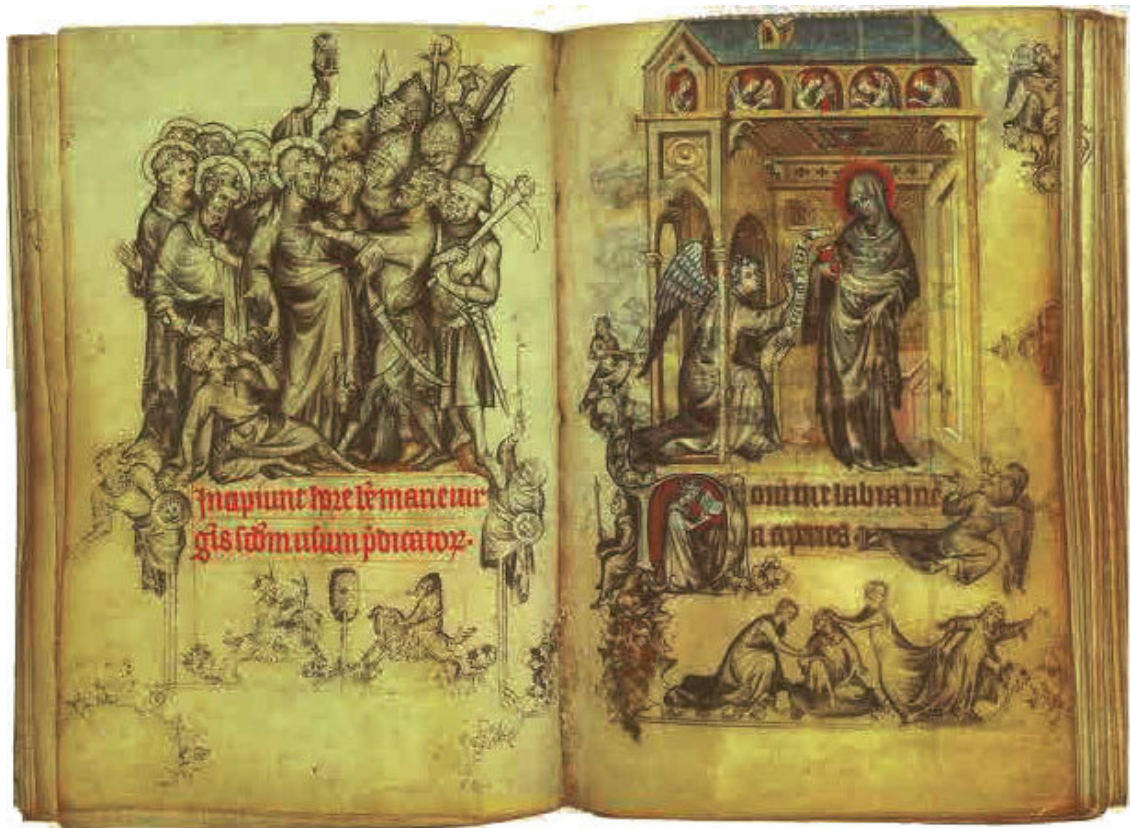 Incipiunt hore sc̄e marie uir
gīs scd̄m usum p̄dicatoꝝ.
Domine labia me
a aperies.